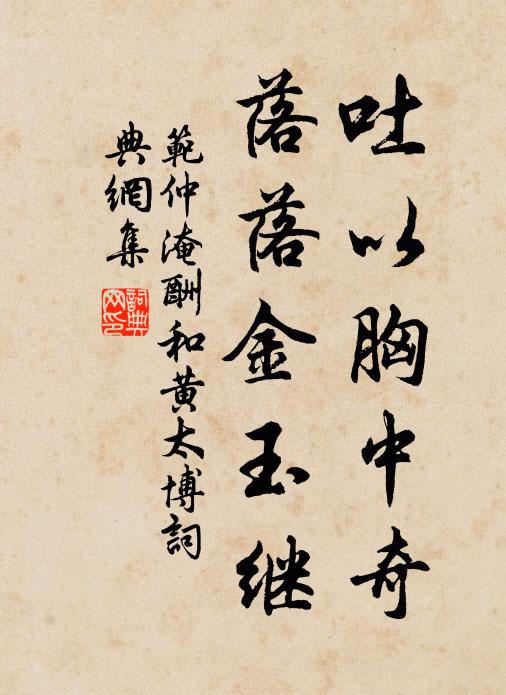 吐以胸中奇
落落金玉继
範仲淹酬和黄太博詞
典網集
詞典
网印